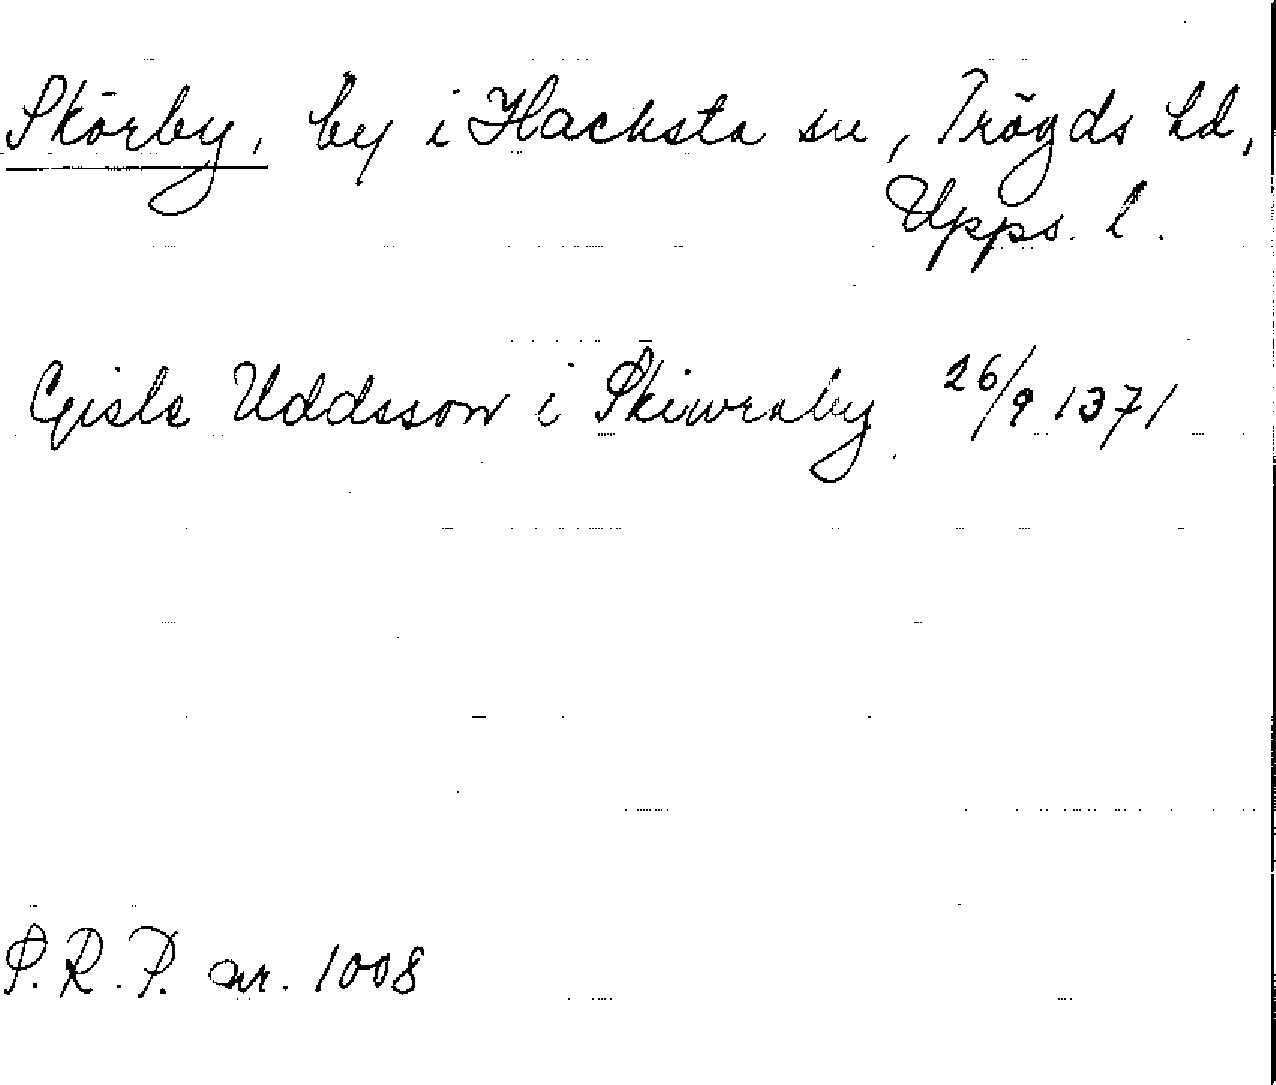 Skörby, by i Hacksta sn, Trögds hd,
Upps. l.
Gisle Uddsson i Skiwraby 26/9 1371
S.R.P. nr. 1008